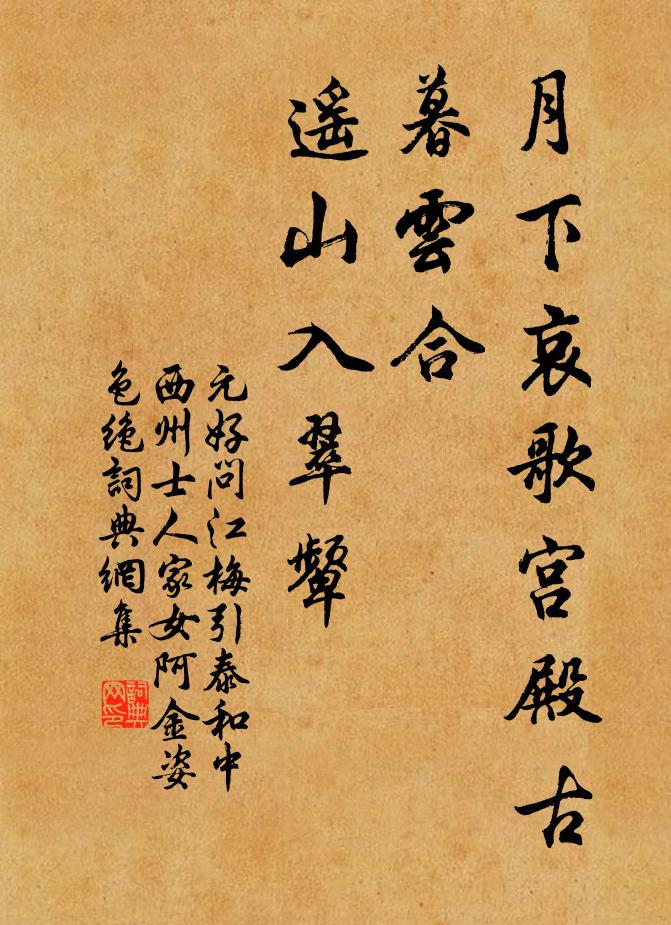 月下哀歌宫殿古
暮雲合
遥山入翠颦
元好问江梅引泰和中
西州士人家女阿金姿
色绝詞典網集
詞典网印